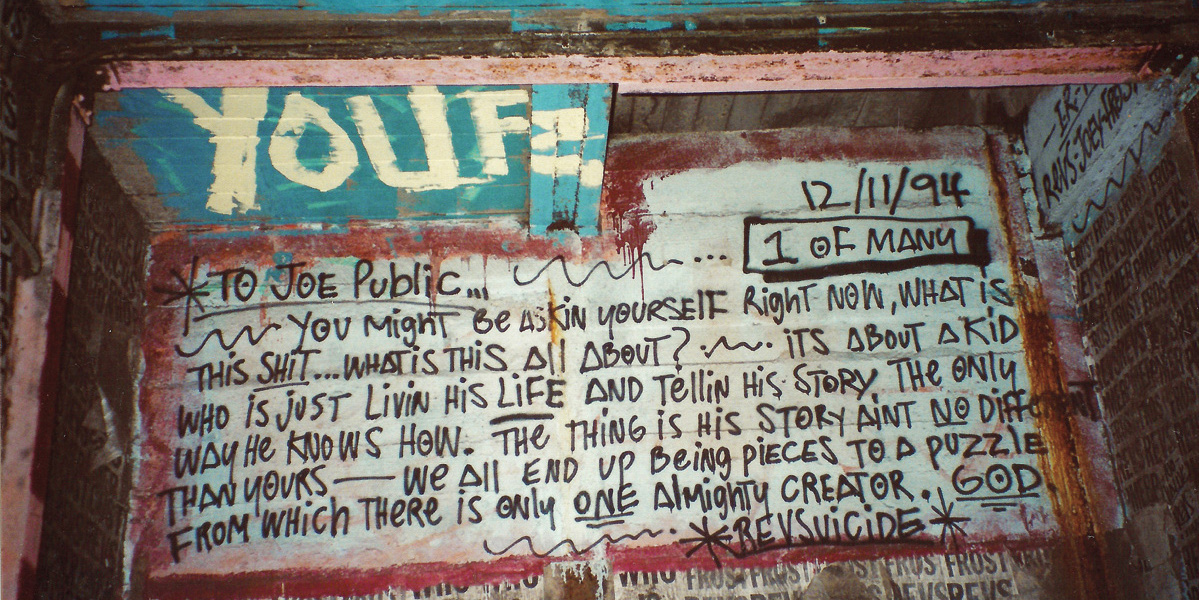 YOUF
12/11/94
1 OF MANY
*TO JOE Public...
...
YOU Might Be ASKIN YOURSELF Right NOW, WHAT iS
THiS SHiT... WHAT iS THiS All ABOUT? iTS ABOUT A KiD
WHO iS JUST LiViN HiS LiFE AND TellIN HiS STORY THE ONLY
WAY HE KNOWS HOW. THE THING iS HiS STORY AiNT NO DiFFERENT
THAN YOURS — WE All END UP BEiNG PiECES TO A PUZZlE
FROM WHiCH THERE iS ONlY ONE AlMiGHTY CREATOR. GOD.
*REVSUiCiDE*
REVS·JOEY·FROST
FROST FROST FROST FROST